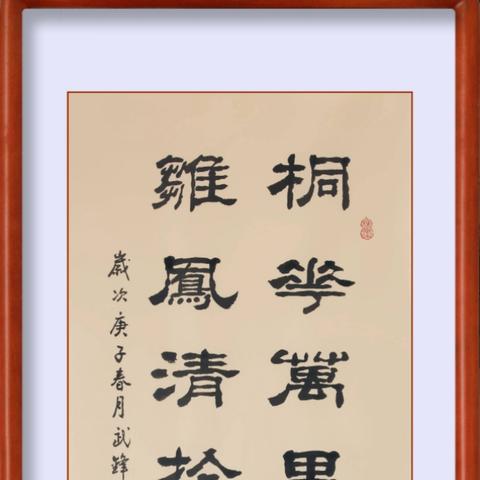 桐華萬里
雛鳳清於
歲次庚子春月武鋒